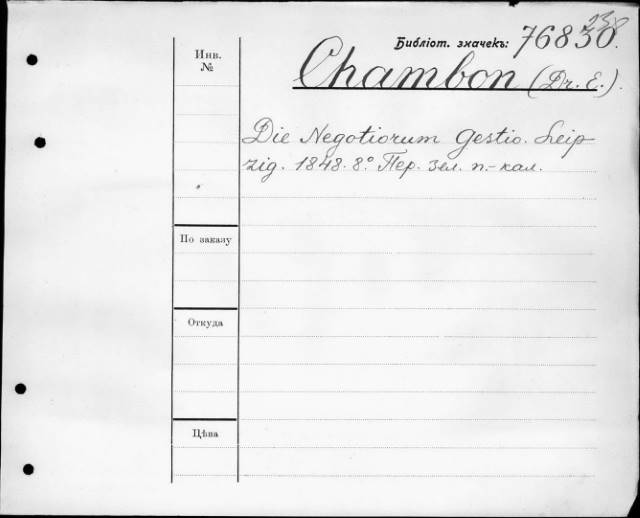 238
Библіот. значекъ: 76830.
Инв.
№
Chambon (Dr. E.).
Die Negotiorum Gestio. Leip
zig. 1848. 8º. Пер. зел. п.-кал.
По заказу
Откуда
Цѣна